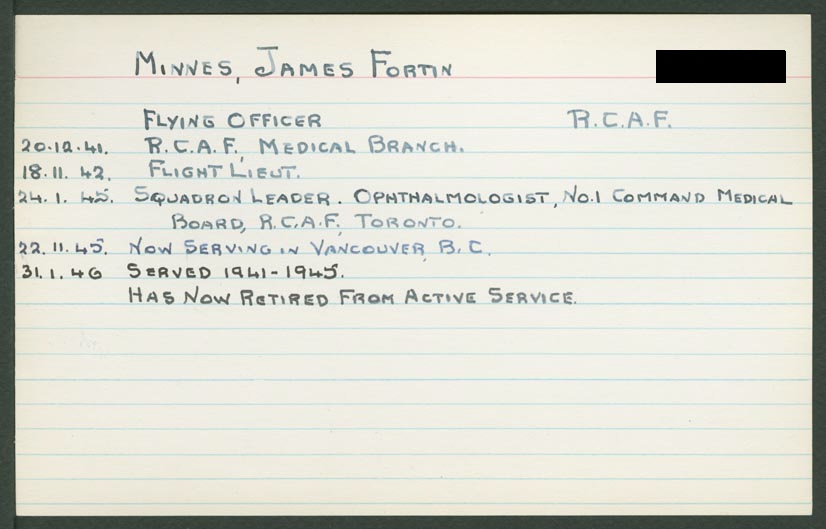 MINNES, JAMES FORTIN
FLYING OFFICER R.C.A.F.
20.12.41. R.C.A.F. MEDICAL BRANCH.
18.11.42. FLIGHT LIEUT.
24.1.45. SQUADRON LEADER. OPHTHALMOLOGIST, NO.1 COMMAND MEDICAL
BOARD, R.C.A.F. TORONTO.
22.11.45. NOW SERVING IN VANCOUVER, B.C.
31.1.46 SERVED 1941-1945.
HAS NOW RETIRED FROM ACTIVE SERVICE.